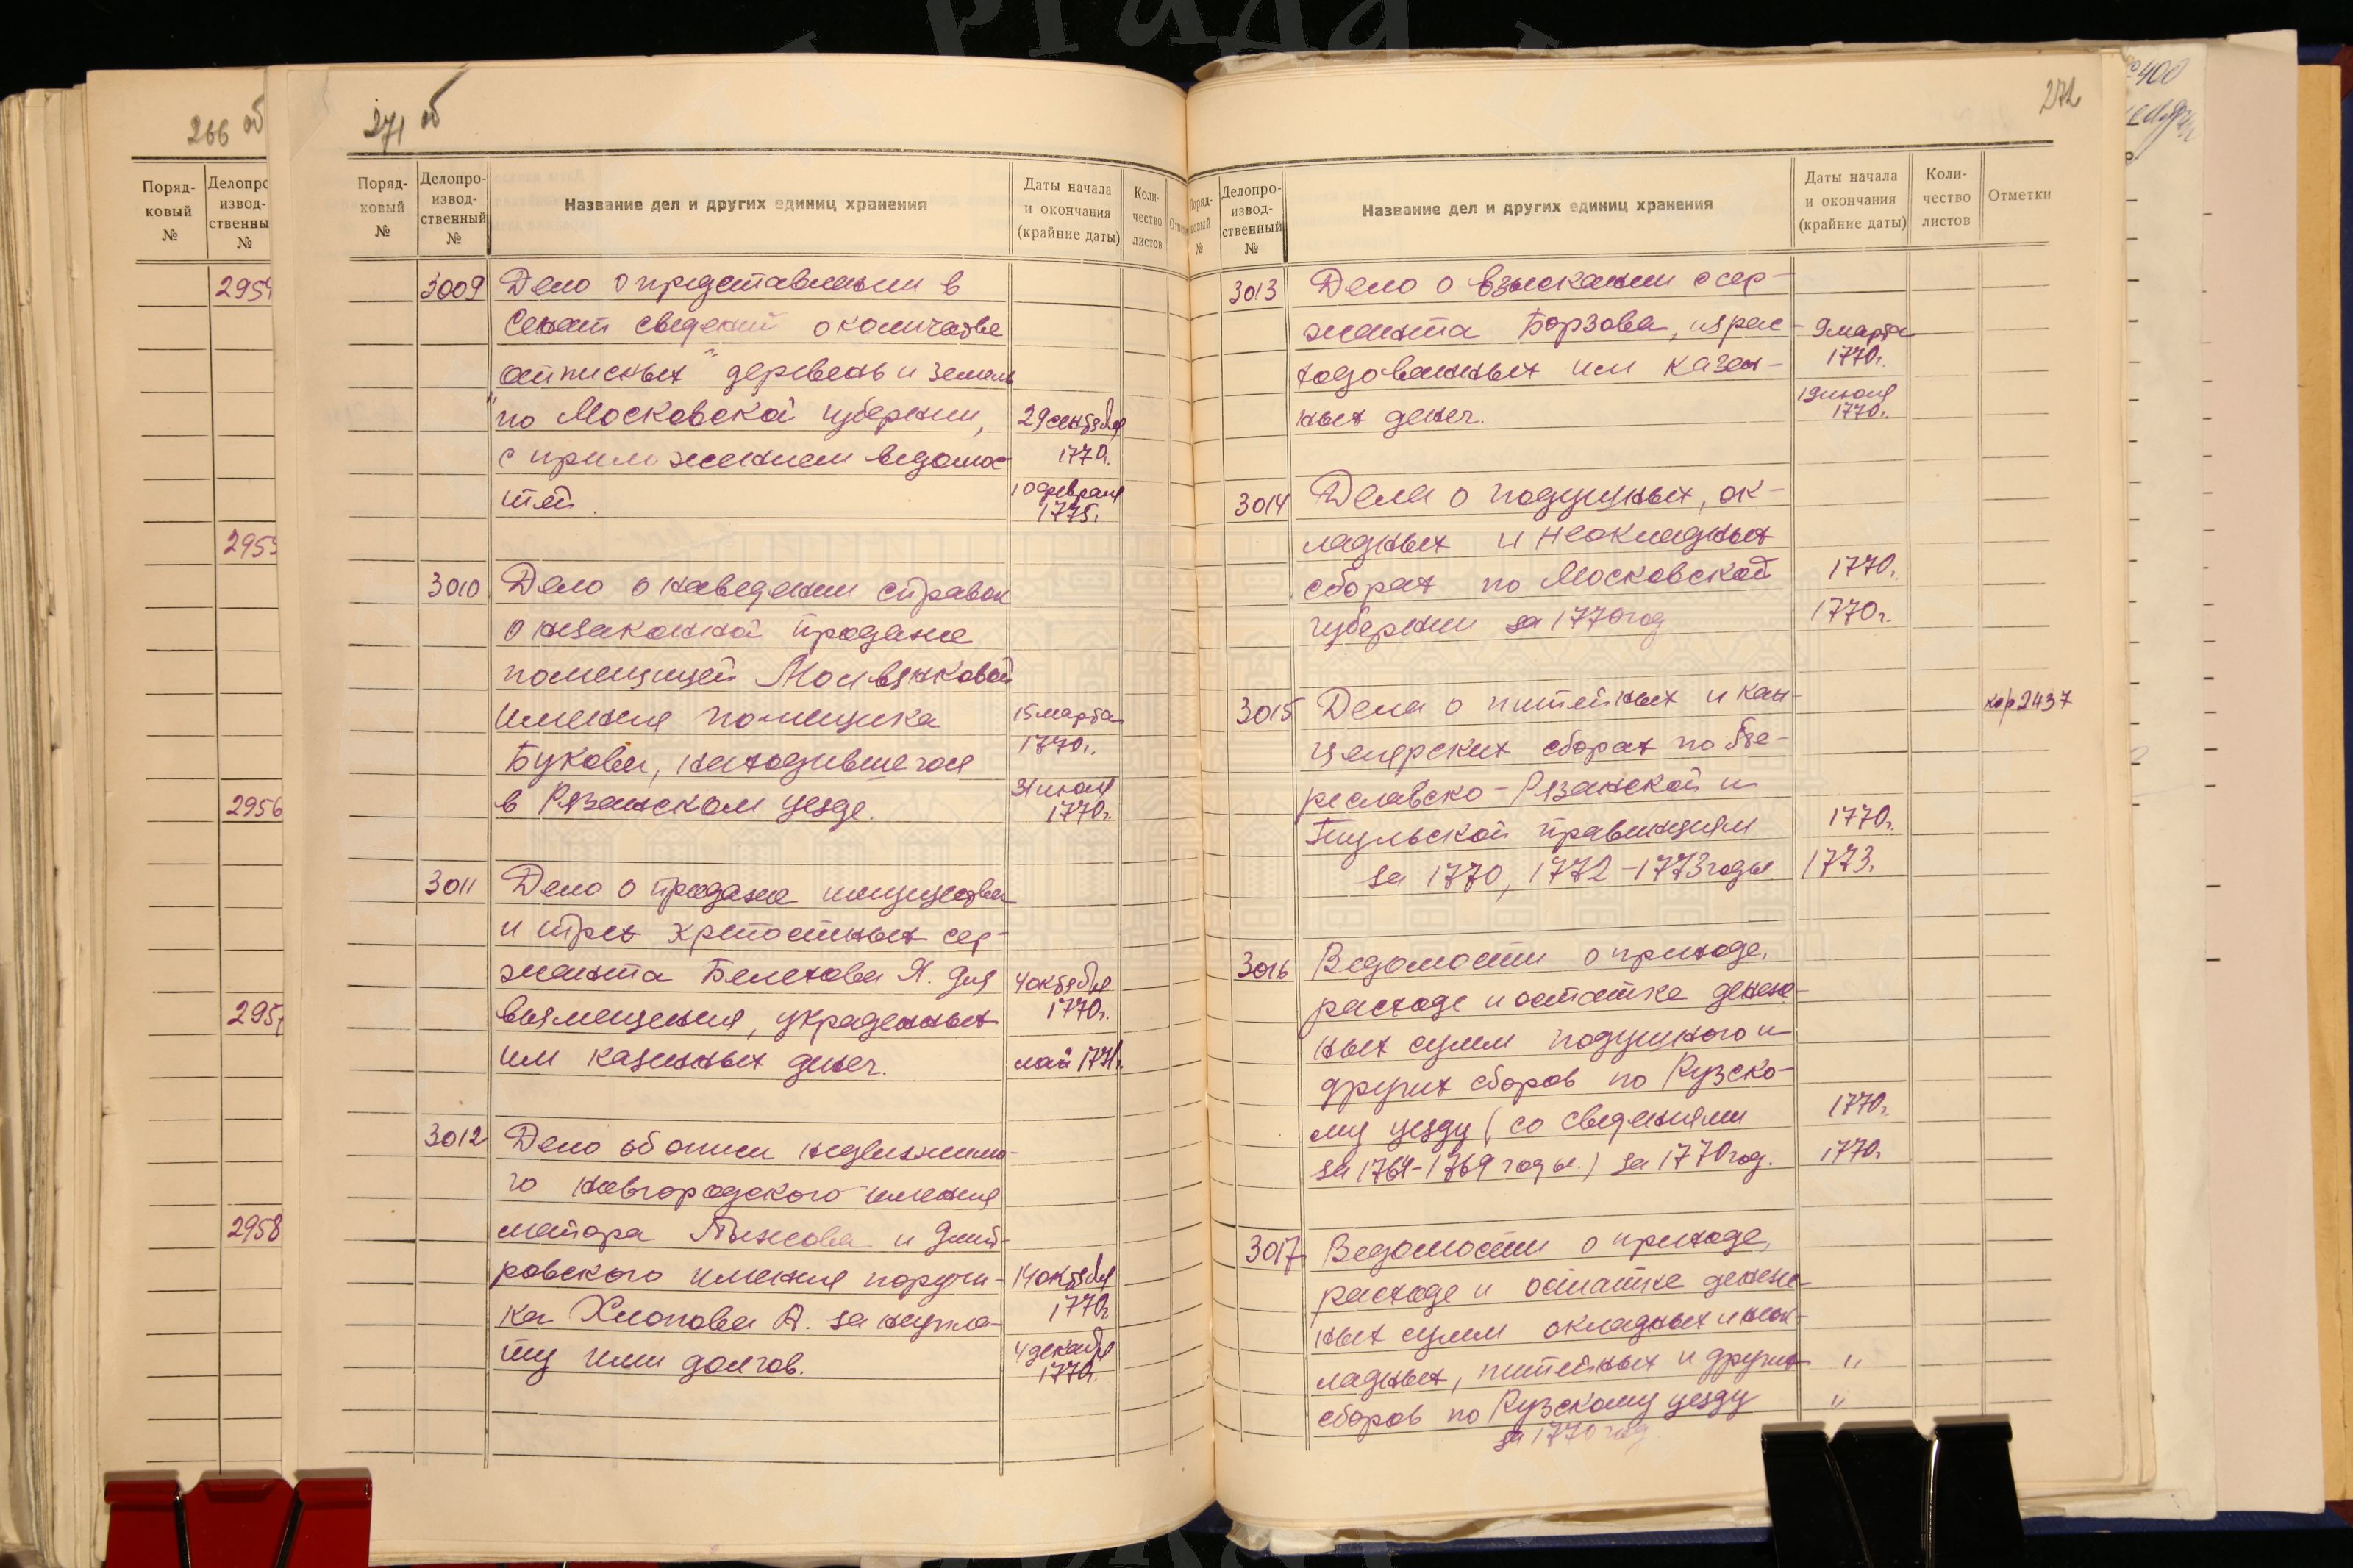 РГАДА
266 об
Поряд-
ковый
№
Делопро
извод-
ственны
№
2955
2956
2958
271 об
Поряд-
ковый
№
Делопро-
извод-
ственный
№
Название дел и других единиц хранения
Даты начала
и окончания
(крайние даты)
Коли-
чество
листов
3009 Дело о представлении в
Сенат сведений о количестве
"отписных" деревень и земель
по Московской губернии, 29 сентября
с приложением ведомос- 1770г.
тей. 10 февраля
1775г.
3010 Дело о наведении справок
о незаконной продаже
помещицей
имения помещика 15 марта
1770г.
Букова, находившегося
31 июля
в Рязанском уезде. 1770г.
3011 Дело о продаже имущества
и трех крепостных сер-
жанта Белехова Я. для 4 октября
возмещения, украденных 1770г.
им казенных денег. май 1771г.
3012 Дело об описи недвижимо-
го новгородского имения
майора и дмит-
ровского имения поручи- 14 октября
ка Хлопова А. за неупла- 1770г.
ту ими долгов. 4 декабря
1770г.
272
Поряд-
ковый
№
Делопро-
извод-
ственный
№
Название дел и других единиц хранения
Даты начала
и окончания
(крайние даты)
Коли-
чество
листов
Отметки
3013 Дело о взыскании с сер-
жанта Борзова, израс- 9 марта
ходованных им казен- 1770г.
ных денег. 19 июля
1770г.
3014 Дела о подушных, ок-
ладных и неокладных
сборах по Московской 1770г.
губернии за 1770 год 1770г.
3015 Дела о питейных и кан- кор 2437
целярских сборах по Пе-
реславско-Рязанской и
Тульской провинциям 1770г.
за 1770, 1772-1773 годы 1773г.
3016 Ведомости о приходе,
расходе и остатке денеж-
ных сумм подушного и
других сборов по Рузско-
му уезду (со сведениями 1770г.
за 1764-1769 годы.) за 1770 год. 1770г.
3017 Ведомости о приходе,
расходе и остатке денеж-
ных сумм окладных и неок-
ладных, питейных и других "
сборов по Рузскому уезду "
за 1770 год
№400